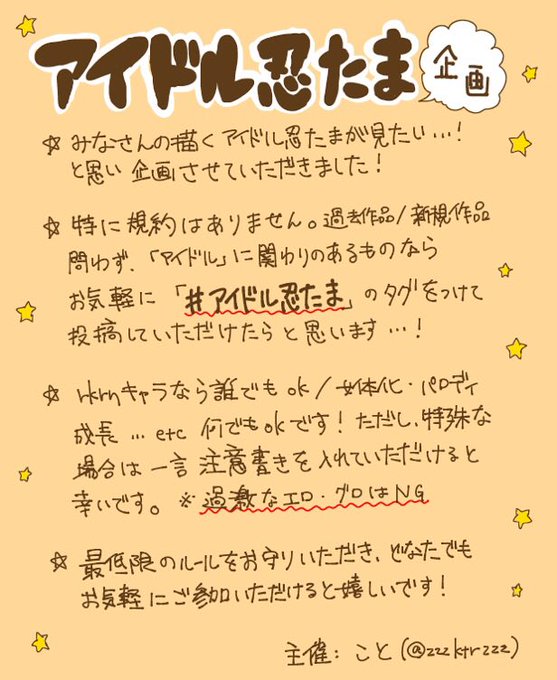 アイドル忍たま
企画
☆ みなさんの描くアイドル忍たまが見たい…！
と思い企画させていただきました！
☆ 特に規約はありません。過去作品/新規作品
問わず、「アイドル」に関わりのあるものなら
お気軽に「#アイドル忍たま」のタグをつけて
投稿していただけたらと思います…！
☆ rkrnキャラなら誰でもok/女体化・パロディ
成長…etc 何でもokです！ただし、特殊な
場合は一言注意書きを入れていただけると
幸いです。※過激なエロ・グロはNG
☆ 最低限のルールをお守りいただき、どなたでも
お気軽にご参加いただけると嬉しいです！
主催：こと(@zzzktrzzz)